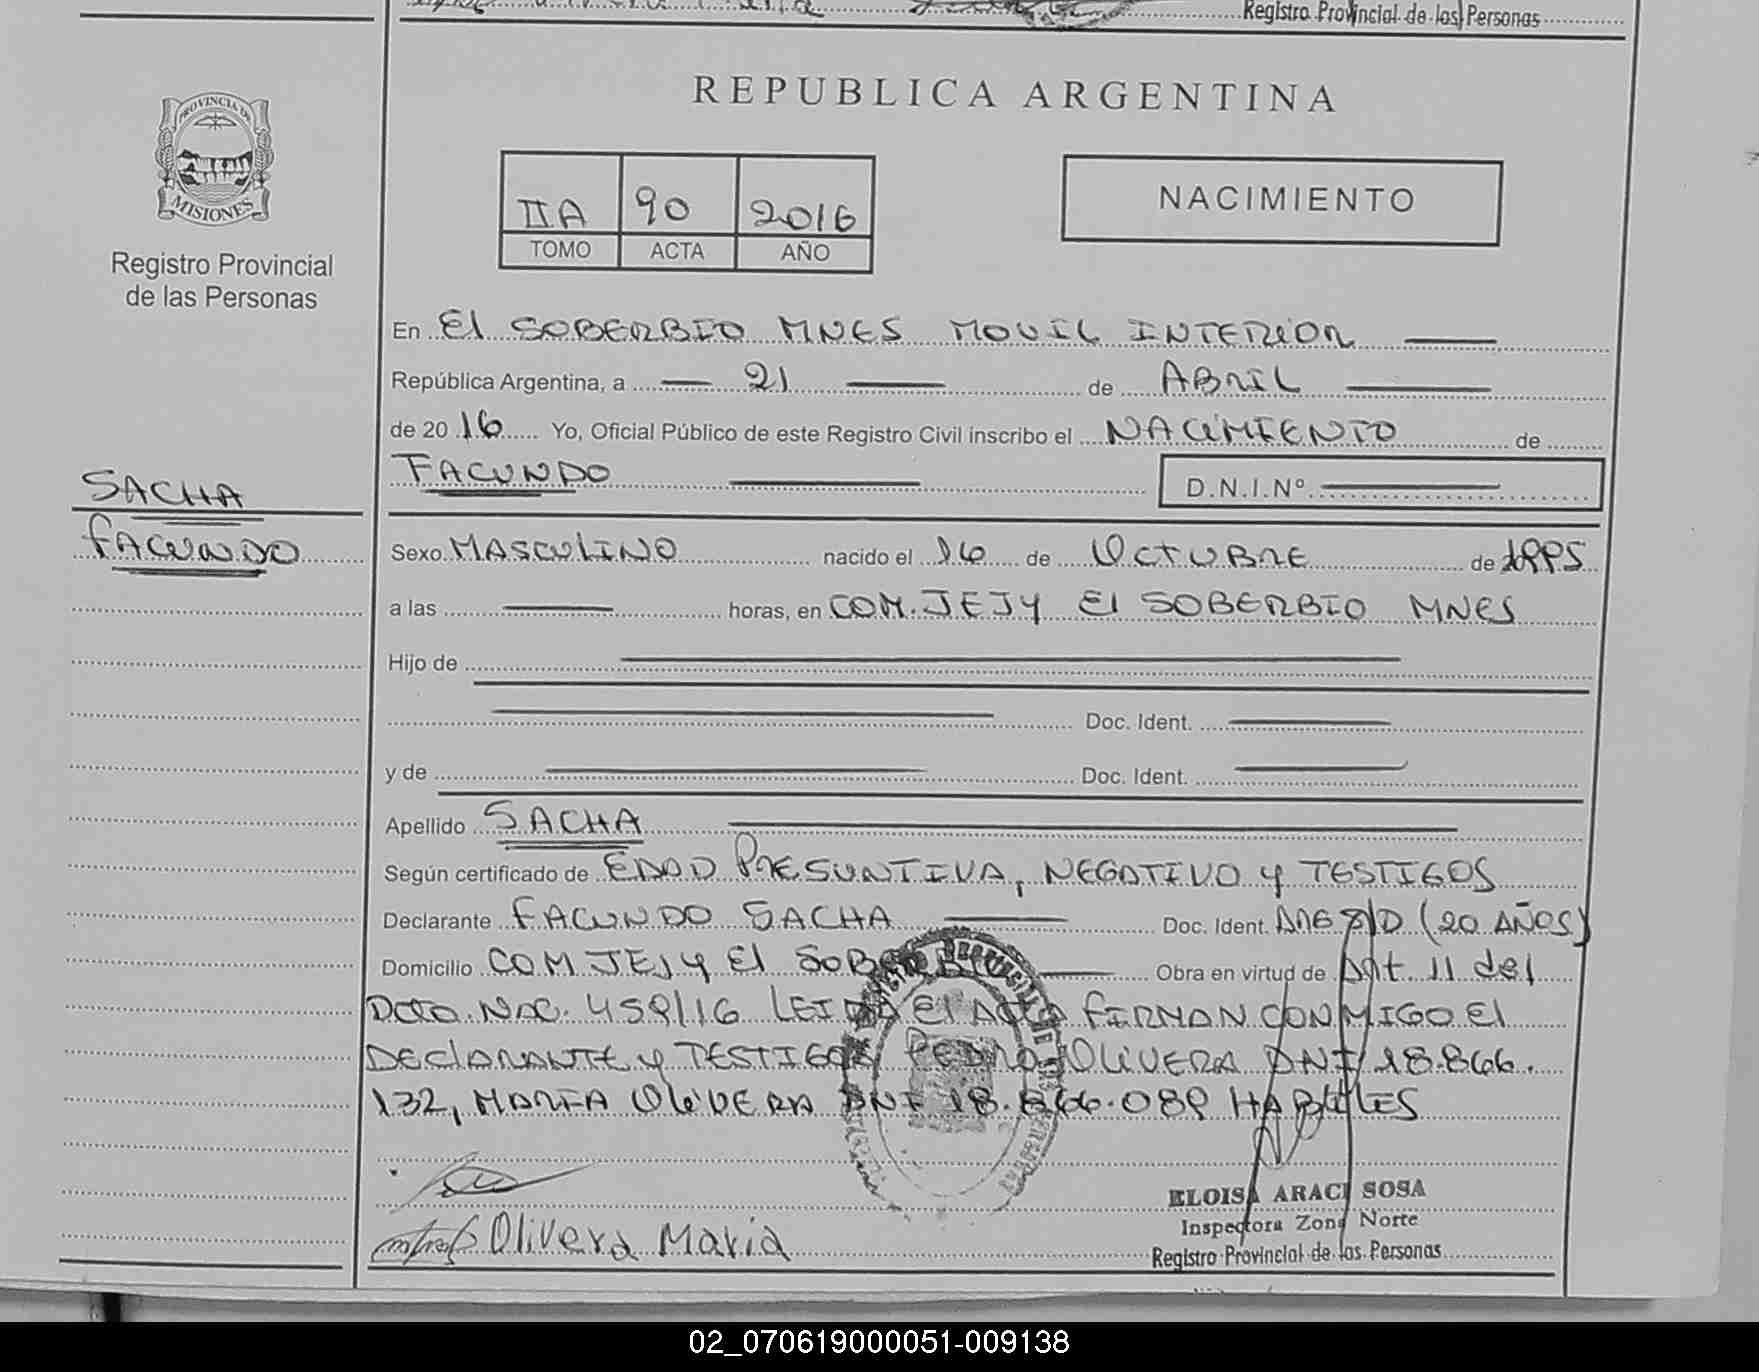 Registro Provincial de las Personas
PROVINCIA DE
MISIONES
Registro Provincial
de las Personas
SACHA
FACUNDO
REPUBLICA ARGENTINA
IIA 90 2016
TOMO ACTA AÑO
NACIMIENTO
En El SOBERBIO MNES MOVIL INTERIOR
República Argentina, a 21 de ABRIL
de 2016 Yo, Oficial Público de este Registro Civil inscribo el NACIMIENTO de
FACUNDO D.N.I.Nº
Sexo MASCULINO nacido el 16 de OCTUBRE de 1995
a las horas, en COM. JEJY El SOBERBIO MNES
Hijo de
Doc. Ident.
y de Doc. Ident.
Apellido SACHA
Según certificado de EDAD PRESUNTIVA, NEGATIVO y TESTIGOS
Declarante FACUNDO SACHA Doc. Ident. ARG S/D (20 AÑOS)
Domicilio COM JEJY El SOBERBIO Obra en virtud de Art. 11 del
DCTO. NAC. 459/16 LEIDA El ACTA FIRMAN CONMIGO El
DEClARANTE y TESTIGOS PEDRO OLIVERA DNI 18.866.
132, MARIA OlIVERA DNI 18.866.089 HABILES
Olivera Maria
ELOISA ARACI SOSA
Inspectora Zona Norte
Registro Provincial de las Personas
02_070619000051-009138